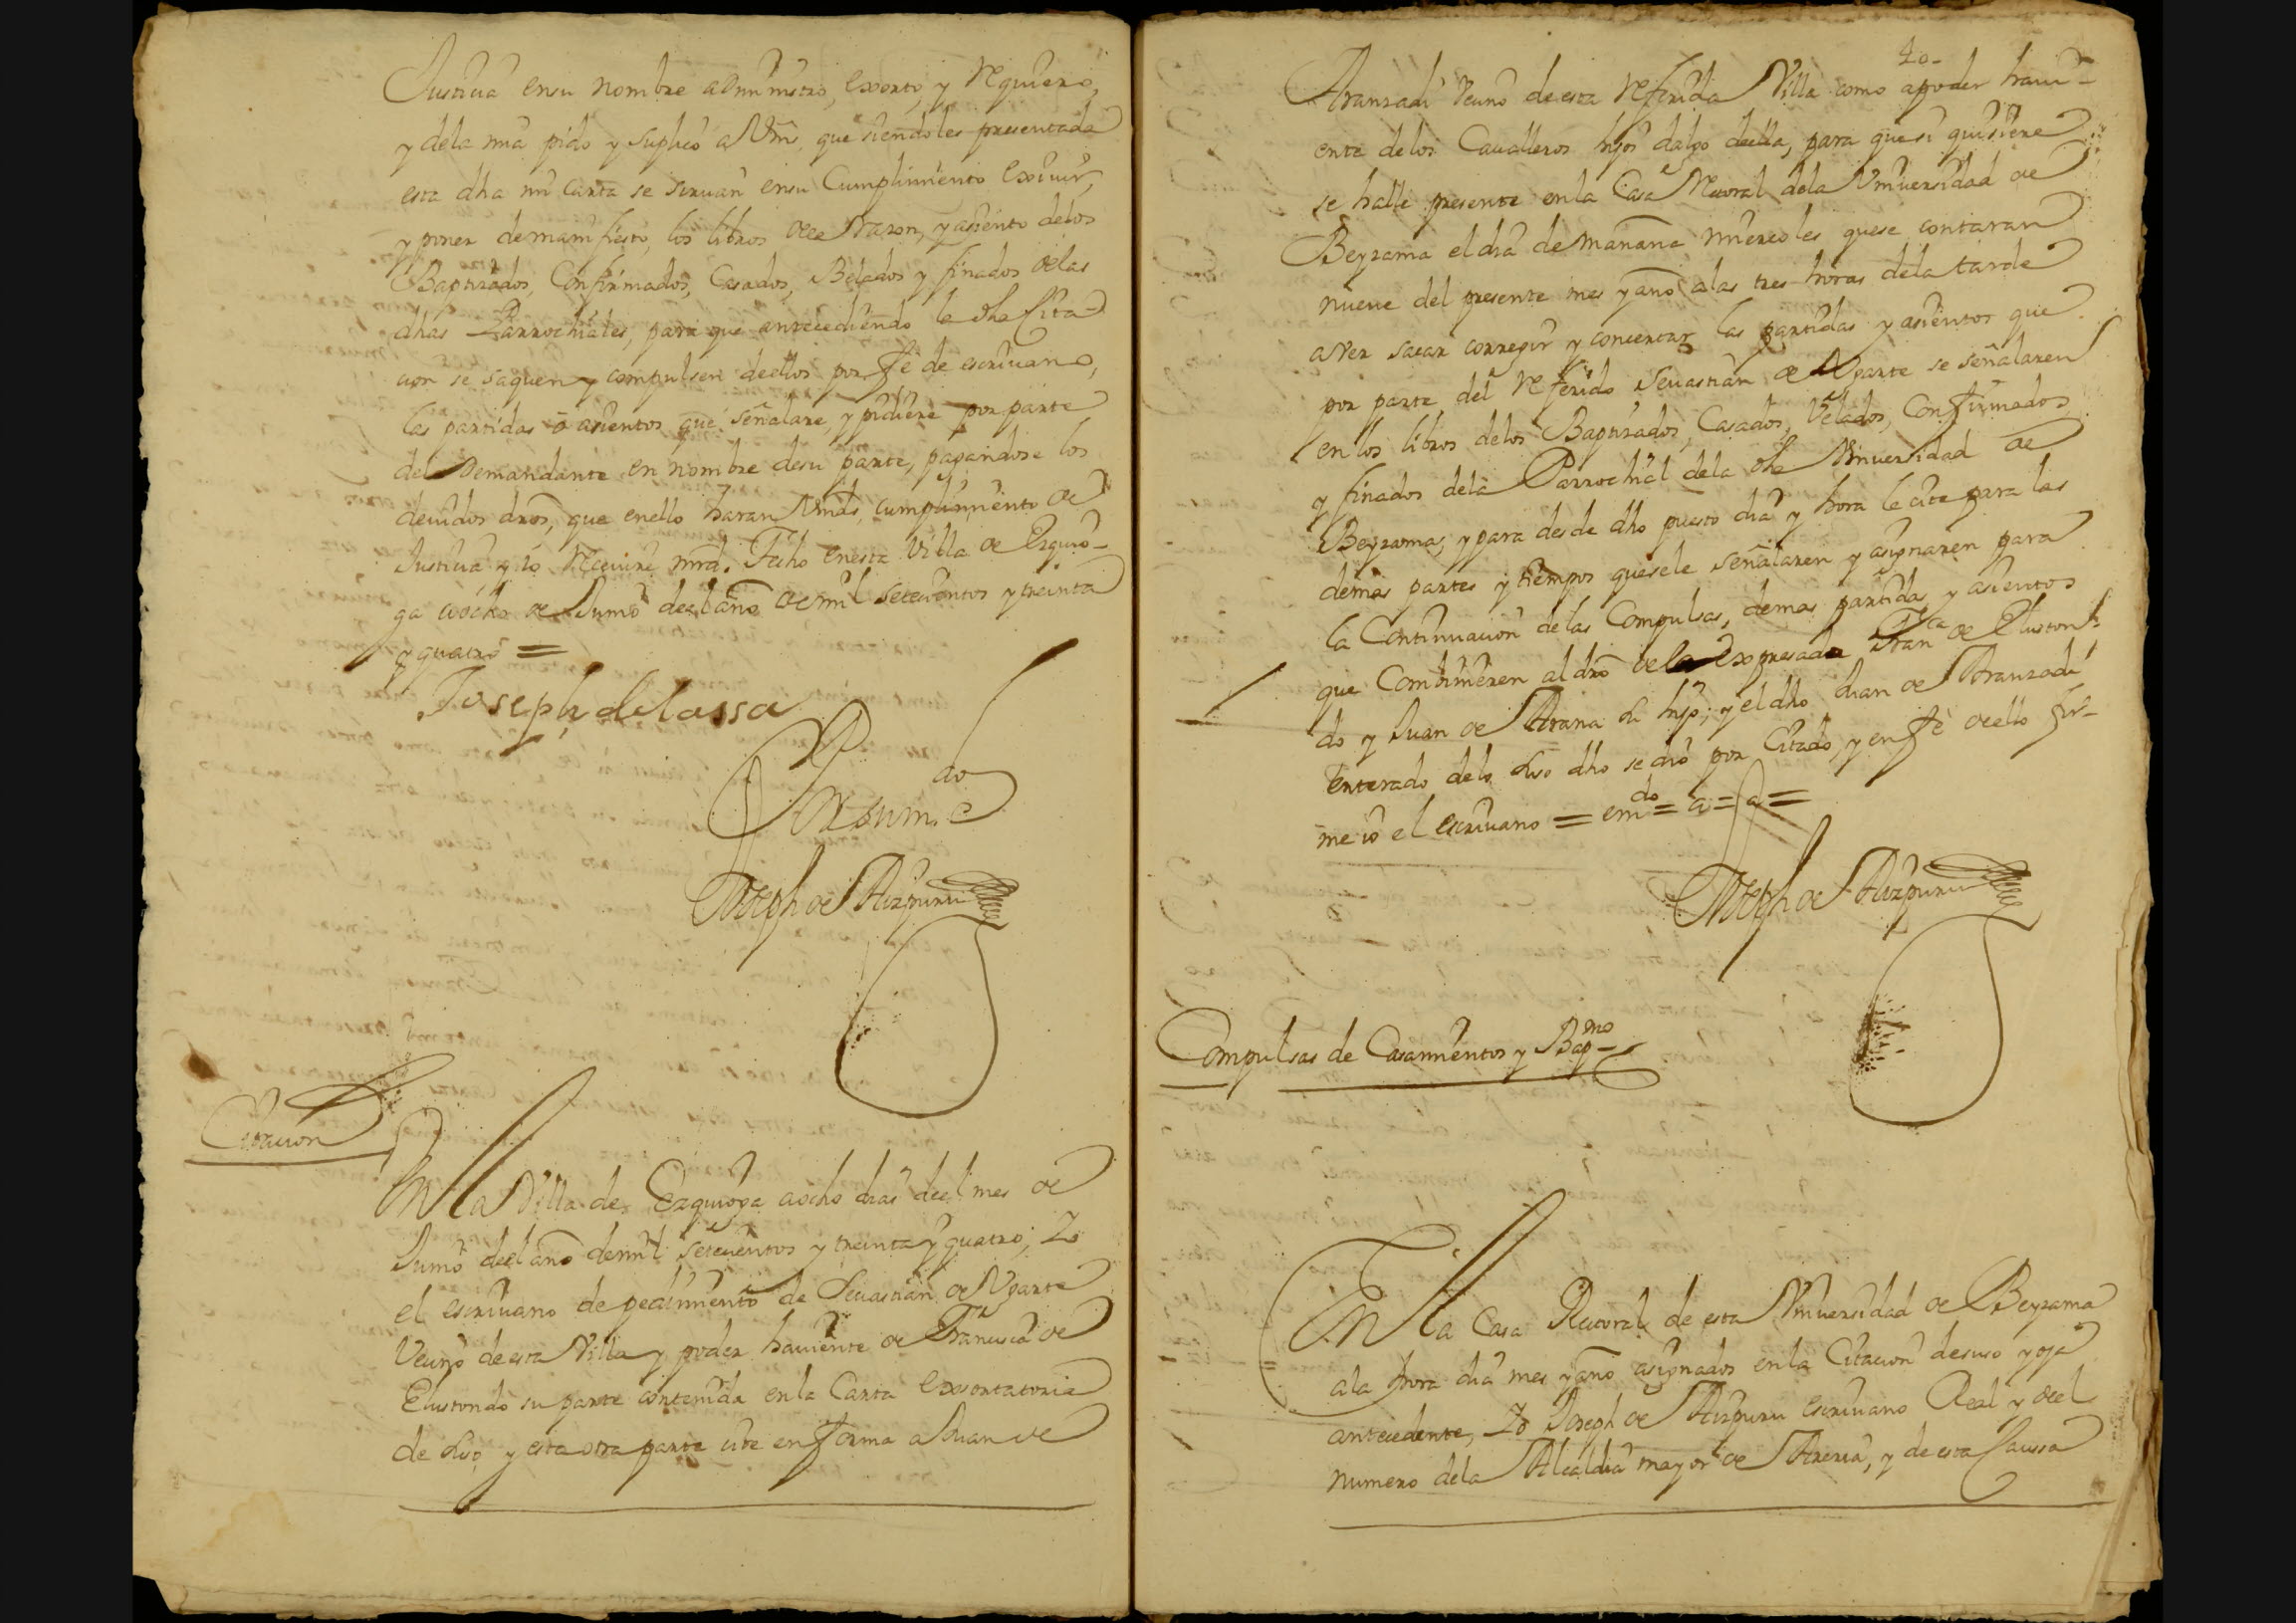 Justicia en su nombre administro, exorto, y Requiero,
y dela mia pido y suplico a Vms. que siendoles presentada
esta dha mi carta se siruan en su Cumplimiento Exiuir,
y poner de manifiesto, los libros de Razon, y asiento delos
Baptizados, Confirmados, Casados, Belados y finados de las
dhas Parrochiales, para que antecediendo la dha Cita-
cion se saquen y compulsen de ellos por fe de escriuano,
las partidas ō asientos que señalare, y pidiere por parte
del Demandante en nombre de su parte, pagandose los
deuidos dros, que en ello haran Vmds, cumplimiento de
Justicia y io Reciuire mrd. Fecho en esta Villa de Ezquio-
ga a ocho de Junio de el año de mil setecientos y treinta
y quatro =
Joseph de lassa
Por su m.do
Joseph de Aizpuru
Citacion
En la Villa de Ezquioga a ocho dias de el mes de
Junio de el año de mil setecientos y treinta y quatro; Yo
el escriuano de pedimiento de Seuastian de Ugarte
Vecino de esta Villa y poder hauiente de Francisca de
Elustondo su parte contenida en la Carta Exsortatoria
de suso y esta otra parte cite en forma a Juan de
40-
Aranzadi Vecino de esta Referida Villa como a poder haui-
ente de los Caualleros hijos dalgo de ella, para que si quisiere
se halle presente en la Casa Rectoral dela Vniversidad de
Beyzama el dia de mañana miercoles que se contaran
nueue del presente mes y año a las tres horas dela tarde
a Ver sacar corregir y concertar las partidas y asientos que
por parte del Referido Seuastian de Ugarte se señalaren
en los libros delos Baptizados, Casados, Velados, Confirmados
y finados dela Parrochial dela dha Vniversidad de
Beyzama, y para desde dho puesto dia y hora le cite para las
demas partes y tiempos que se le señalaren y asignaren para
la Continuacion de las Compulsas, demas partidas y asientos
que Combinieren al dro de la Expresada Fran.ca de Eluston-
do y Juan de Arana su hijo; y el dho Juan de Aranzadi
enterado delo suso dho se dio por Citado, y en fe de ello fir-
me io el escriuano = em.do = a = a =
Joseph de Aizpuru
Compulsas de Casamientos y Bap.mo
En la Casa Rectoral de esta Vniversidad de Beyzama
a la hora dia mes y año asignados en la Citacion de suso y oja
antecedente, Yo Joseph de Aizpuru escriuano Real y del
numero dela Alcaldia mayor de Areria, y de esta Caussa